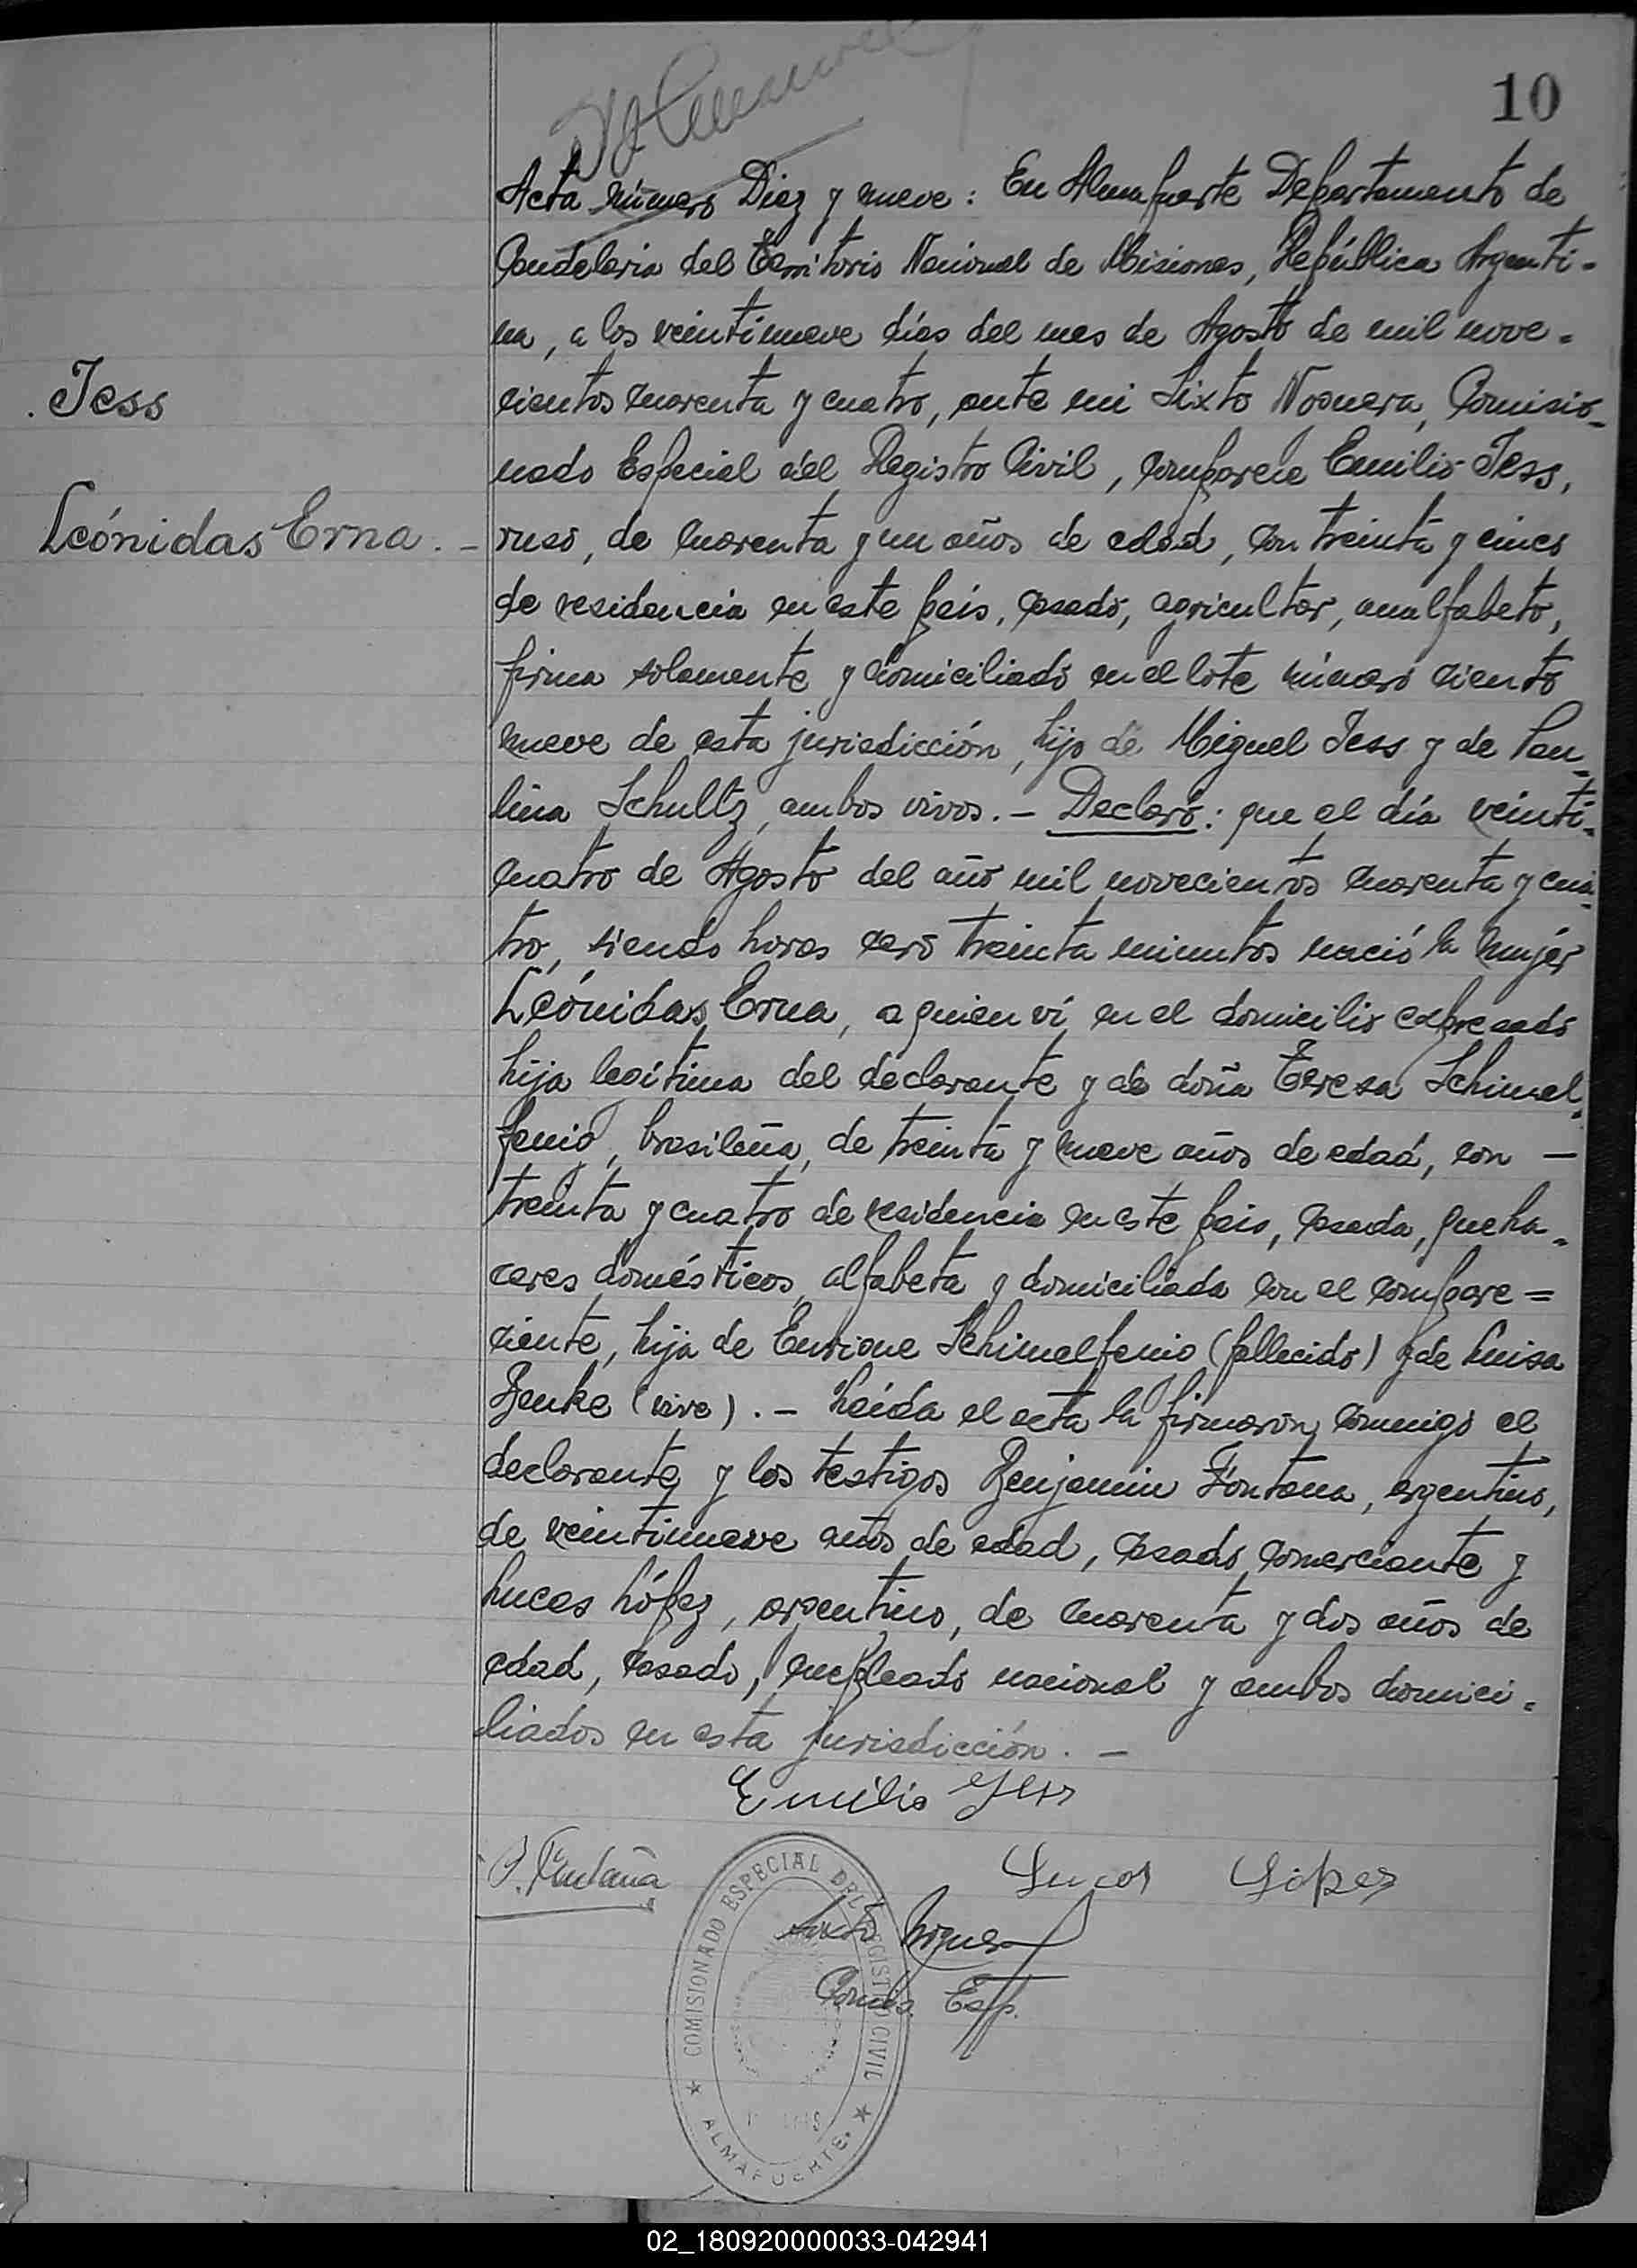 10
Acta número Diez y nueve: En Almafuerte Departamento de
Candelaria del Territorio Nacional de Misiones, República Argenti-
na, a los veintinueve días del mes de Agosto de mil nove-
Jess
cientos cuarenta y cuatro, ante mi Sixto Noguera, Comisio-
nado Especial del Registro Civil, comparece Emilio Jess,
Leónidas Erna. -
ruso, de cuarenta y un años de edad, con treinta y cinco
de residencia en este país, casado, agricultor, analfabeto,
firma solamente y domiciliado en el lote número ciento
nueve de esta jurisdicción, hijo de Miguel Jess y de Pau-
lina Schultz, ambos vivos. - Declaró: que el día veinti-
cuatro de Agosto del año mil novecientos cuarenta y cua-
tro, siendo horas cero treinta minutos nació la mujer
Leónidas Erna, a quien ví en el domicilio expresado
hija legítima del declarante y de doña Teresa Schimel-
fenig, brasileña, de treinta y nueve años de edad, con -
treinta y cuatro de residencia en este país, casada, queha-
ceres domésticos, alfabeta y domiciliada con el compare=
ciente, hija de Enrique Schimelfenig (fallecido) y de Luisa
Benke (vive). - Leída el acta la firmaron conmigo el
declarante y los testigos Benjamin Fontana, argentino,
de veintinueve años de edad, casado, comerciante y
Lucas López, argentino, de cuarenta y dos años de
edad, casado, empleado nacional y ambos domici-
liados en esta jurisdicción. -
Emilio Jess
B. Fontana
Lucas López
Sixto Noguera
Comis. Esp.
COMISIONADO ESPECIAL DEL REGISTRO CIVIL
★ ALMAFUERTE ★
02_180920000033-042941